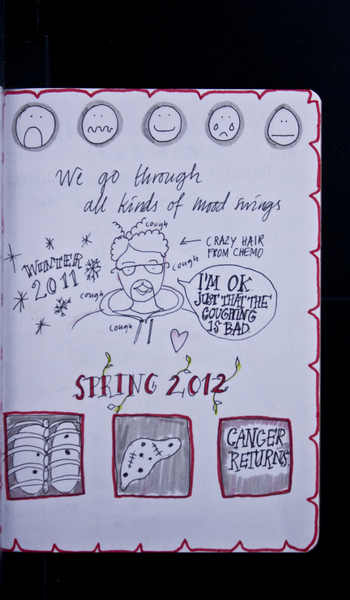 We go through
all kinds of mood swings
cough
← CRAZY HAIR
FROM CHEMO
WINTER
2011
cough
cough
I'M OK.
JUST THAT THE
COUGHING
IS BAD.
cough
SPRING 2012
CANCER
RETURNS.